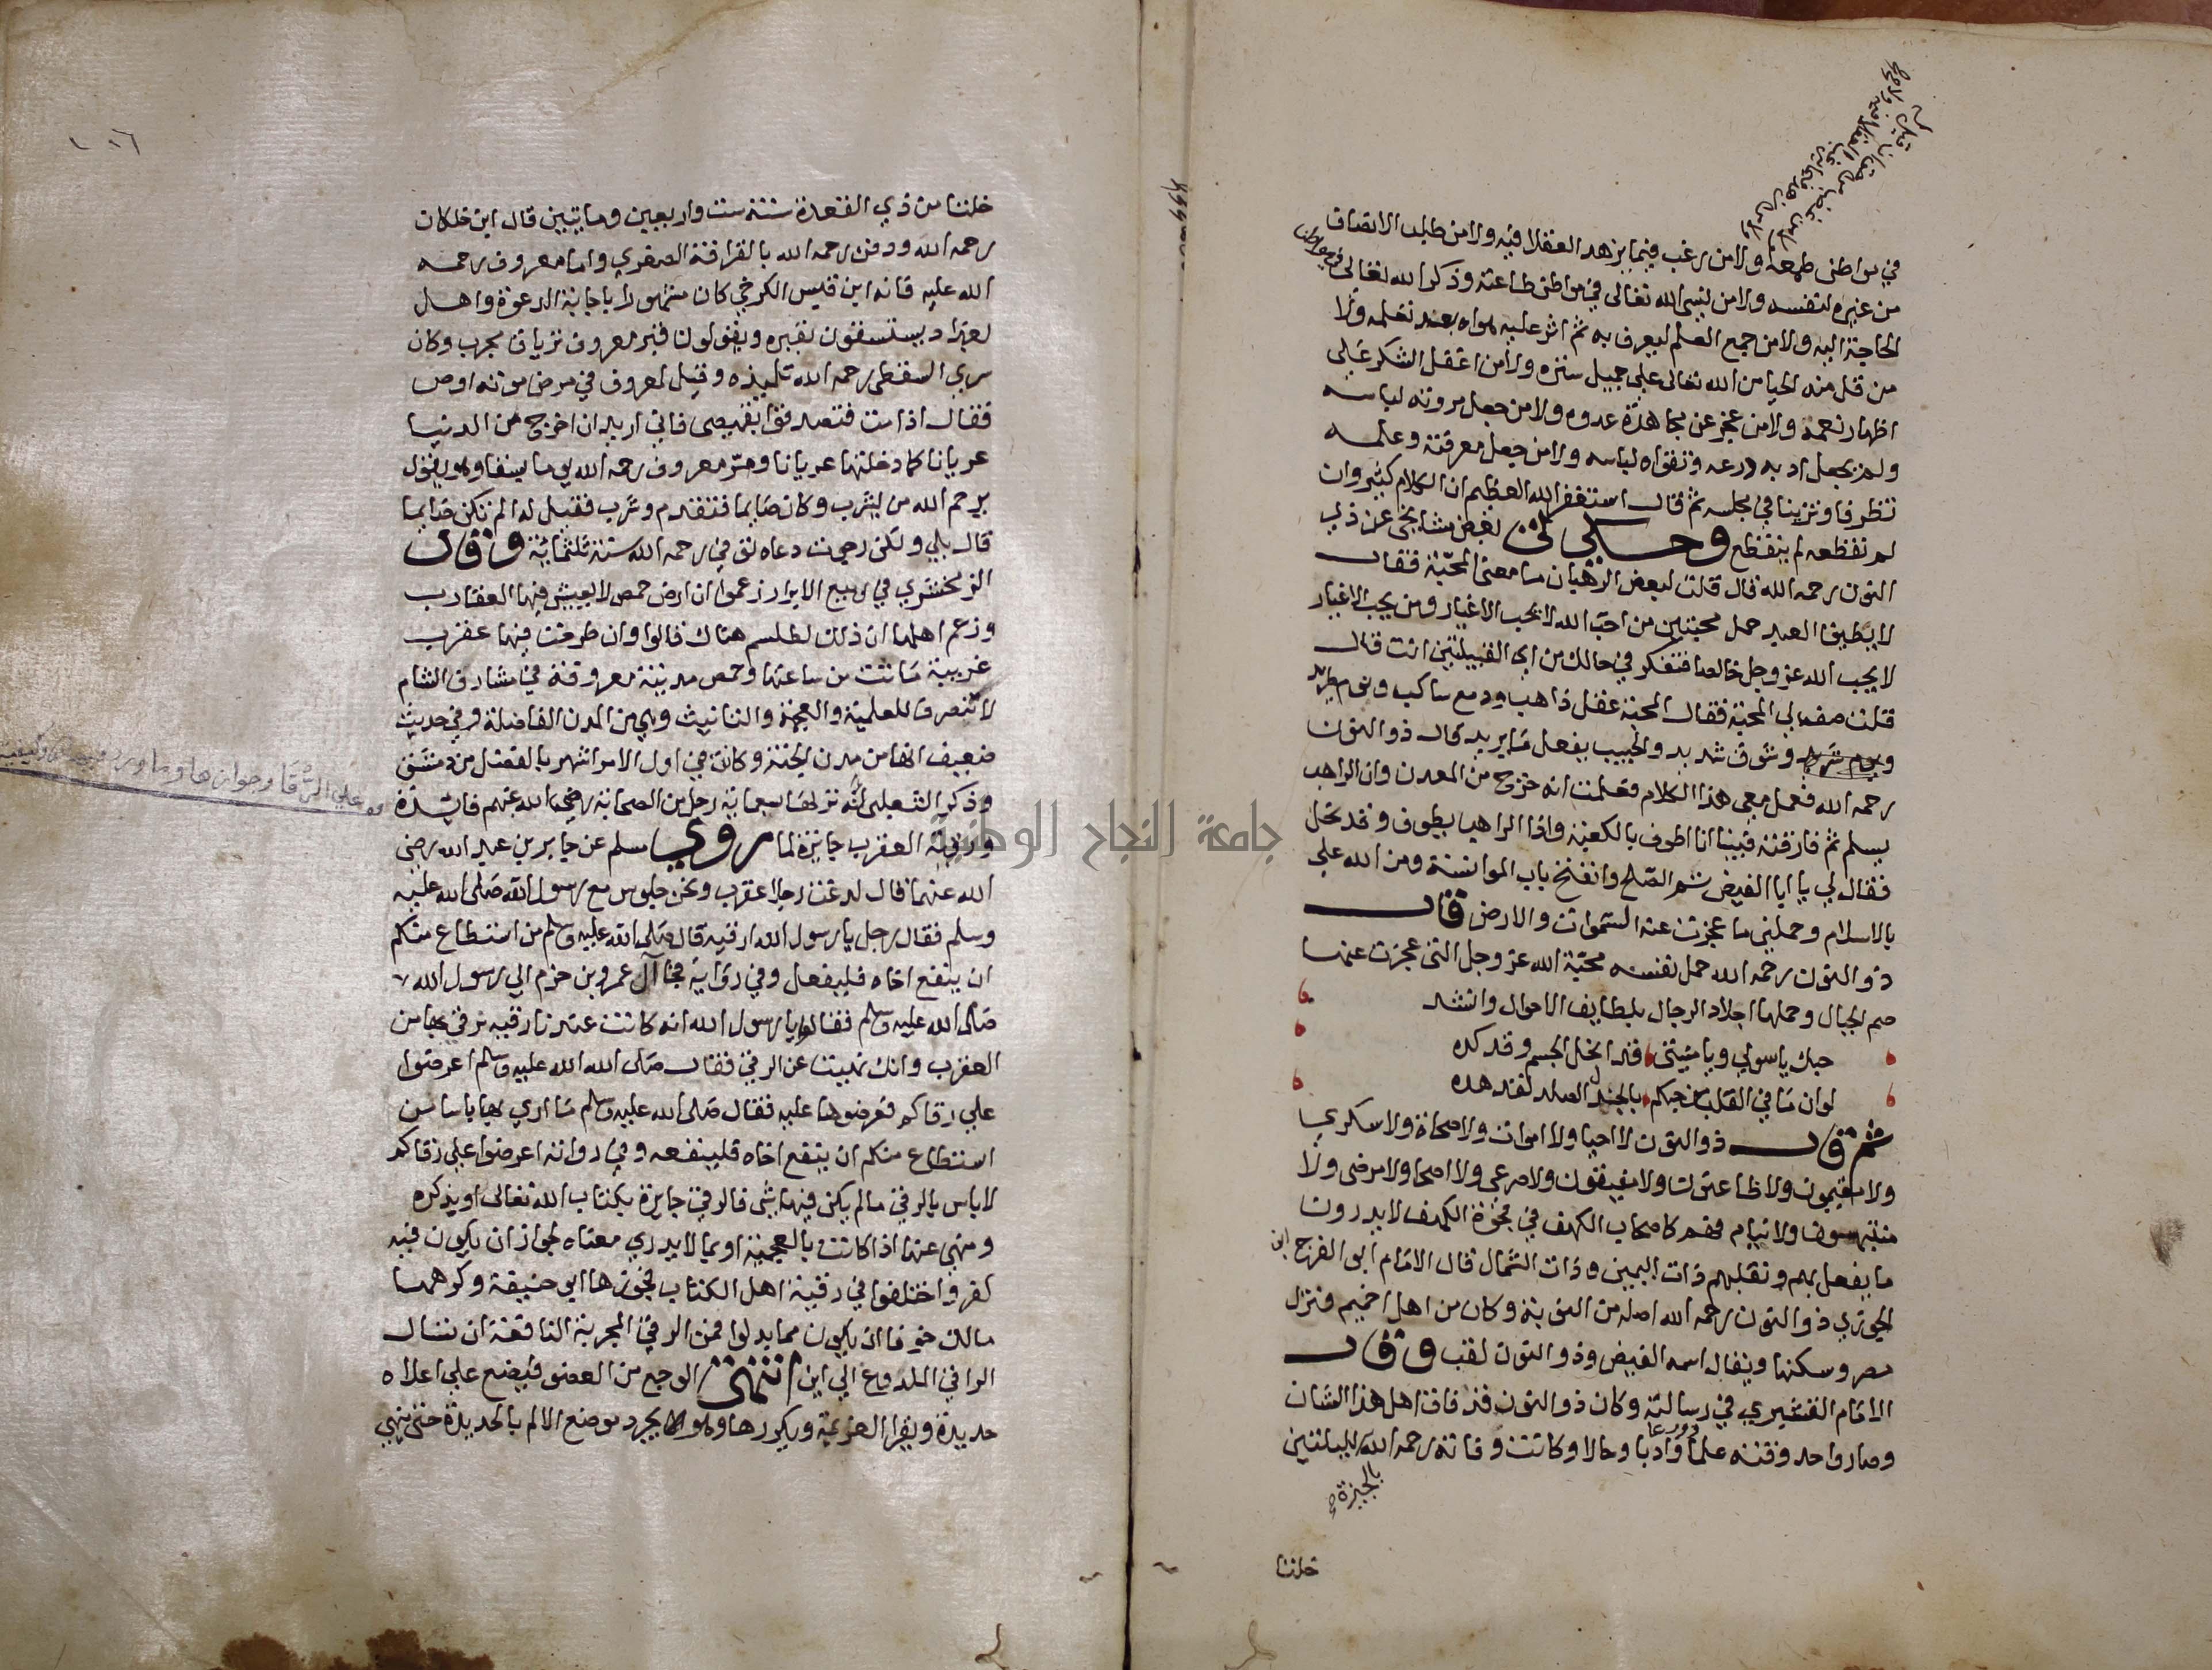 في مواطن طمعه ولا من رغب فيما يزهد العقلا فيه ولا من طلب الانصاف
من غيره لنفسه ولا من نسي الله تعالى في مواطن طاعته وذكر الله تعالى في مواطن
الحاجة اليه ولا من جمع العلم ليعرف به ثم اثر عليه هواه بعد تعلمه ولا
من قل منه الحيا من الله تعالى على جميل ستره ولا من اغفل الشكر على
اظهار نعمه ولا من عجز عن مجاهدة عدوه ولا من جعل مروته لباسه
ولم يجعل ادبه درعه وتقواه لباسه ولا من جعل معرفته وعلمه
تظرفا وتزينا في مجلسه ثم قال استغفر الله العظيم ان الكلام كثير وان
لم تقطعه لم ينقطع وحكى لي بعض مشايخي عن ذي
النون رحمه الله قال قلت لبعض الرهبان ما معنى المحبة فقال
لا يطيق العبد حمل محبتين من احب الله لا يحب الاغيار ومن يحب الاغيار
لا يحب الله عز وجل خالصا فتفكر في حالك من اي القبيلتين انت قال
قلت صف لي المحبة فقال المحبة عقل ذاهب ودمع ساكب ونوم طريد
وشوق شديد والحبيب يفعل ما يريد قال ذو النون
رحمه الله فعمل معي هذا الكلام فعلمت انه خرج من المعدن وان الراهب
يسلم ثم فارقته فبينا انا اطوف بالكعبة واذا الراهب يطوف وقد نحل
فقال لي يا ابا الفيض تم الصلح وانفتح باب الموانسة ومن الله علي
بالاسلام وحملني ما عجزت عنه السموات والارض قال
ذو النون رحمه الله حمل نفسه محبة الله عز وجل التي عجزت عنها
صم الجبال وحملها اجلاد الرجال بلطايف الاحوال وانشد
حبك يا سولي ويا منيتي قد انحل الجسم وقد كده
لو ان ما في القلب من حبكم بالجندل الصلد لقد هده
ثم قال ذو النون لا احيا ولا اموات ولا صحاة ولا سكري
ولا مقيمون ولا ظاعنون ولا مفيقون ولا صرعى ولا اصحا ولا مرضى ولا
منتبهون ولا نيام فهم كاصحاب الكهف في فجوة الكهف لا يدرون
ما يفعل بهم ونقلبهم ذات اليمين وذات الشمال قال الامام ابو الفرج ابن
الجوزي ذو النون رحمه الله اصله من النوبة وكان من اهل اخميم فنزل
مصر وسكنها ويقال اسمه الفيض وذو النون لقب وقال
الامام القشيري في رسالته وكان ذو النون قد فاق اهل هذا الشان
وصار واحد وقته علما وورعا وادبا وحالا وكانت وفاته رحمه الله لليلتين
بالجيزة
خلتا
١٠٦
خلتا من ذي القعدة سنة ست واربعين ومايتين قال ابن خلكان
رحمه الله ودفن رحمه الله بالقرافة الصغرى واما معروف رحمة
الله عليه فانه ابن قيس الكرخي كان مشهورا باجابة الدعوة واهل
بغداد يستسقون بقبره ويقولون قبر معروف ترياق مجرب وكان
سري السقطي رحمه الله تلميذه وقيل لمعروف في مرض موته اوص
فقال اذا مت فتصدقوا بقميصي فاني اريد ان اخرج من الدنيا
عريانا كما دخلتها عريانا ومر معروف رحمه الله يوما بسقا وهو يقول
يرحم الله من يشرب وكان صايما فتقدم وشرب فقيل له الم تكن صايما
قال بلي ولكن رجوت دعاه توفي رحمه الله سنة ثلثماية وقال
الزمخشري في ربيع الابرار زعموا ان ارض حمص لا يعيش فيها العقارب
وزعم اهلها ان ذلك لطلسم هناك قالوا وان طرحت فيها عقرب
غريبة ماتت من ساعتها وحمص مدينة معروفة في مشارق الشام
لا تنصرف للعلمية والعجمة والتانيث وهي من المدن الفاضلة وفي حديث
ضعيف انها من مدن الجنة وكانت في اول الامر اشهر بالفضل من دمشق
وذكر الثعلبي انه نزلها سبعماية رجل من الصحابة رضي الله عنهم فايدة
ورقية العقرب جايزة لما روي مسلم عن جابر بن عبد الله رضي
الله عنهما قال لدغت رجلا عقرب ونحن جلوس مع رسول الله صلى الله عليه
وسلم فقال رجل يا رسول الله ارقيه قال صلى الله عليه وسلم من استطاع منكم
ان ينفع اخاه فليفعل وفي رواية فجا آل عمرو بن حزم الي رسول الله
صلى الله عليه وسلم فقالوا يا رسول الله انه كانت عندنا رقية نرقي بها من
العقرب وانك نهيت عن الرقي فقال صلى الله الله عليه وسلم اعرضوا
علي رقاكم فعرضوها عليه فقال صلى الله عليه وسلم ما اري بها باسا من
استطاع منكم ان ينفع اخاه فلينفعه وفي رواية اعرضوا علي رقاكم
لا باس بالرقي ما لم يكن فيها شي فالرقي جايزة بكتاب الله تعالى او بذكره
ومنهي عنها اذا كانت بالعجمية او بما لا يدري معناه لجواز ان يكون فيه
كفر واختلفوا في رقية اهل الكتاب فجوزها ابو حنيفة وكرهها
مالك خوفا ان يكون مما بدلوا فمن الرقي المجربة النافعة ان يسال
الراقي الملدوغ الي اين انتهى الوجع من العضو فيضع علي اعلاه
حديدة ويقرا العزيمة ويكررها وهو يجرد موضع الالم بالحديدة حتى ينتهي
علي الرقا وجوازها وما ورد
جامعة النجاح الوطنية